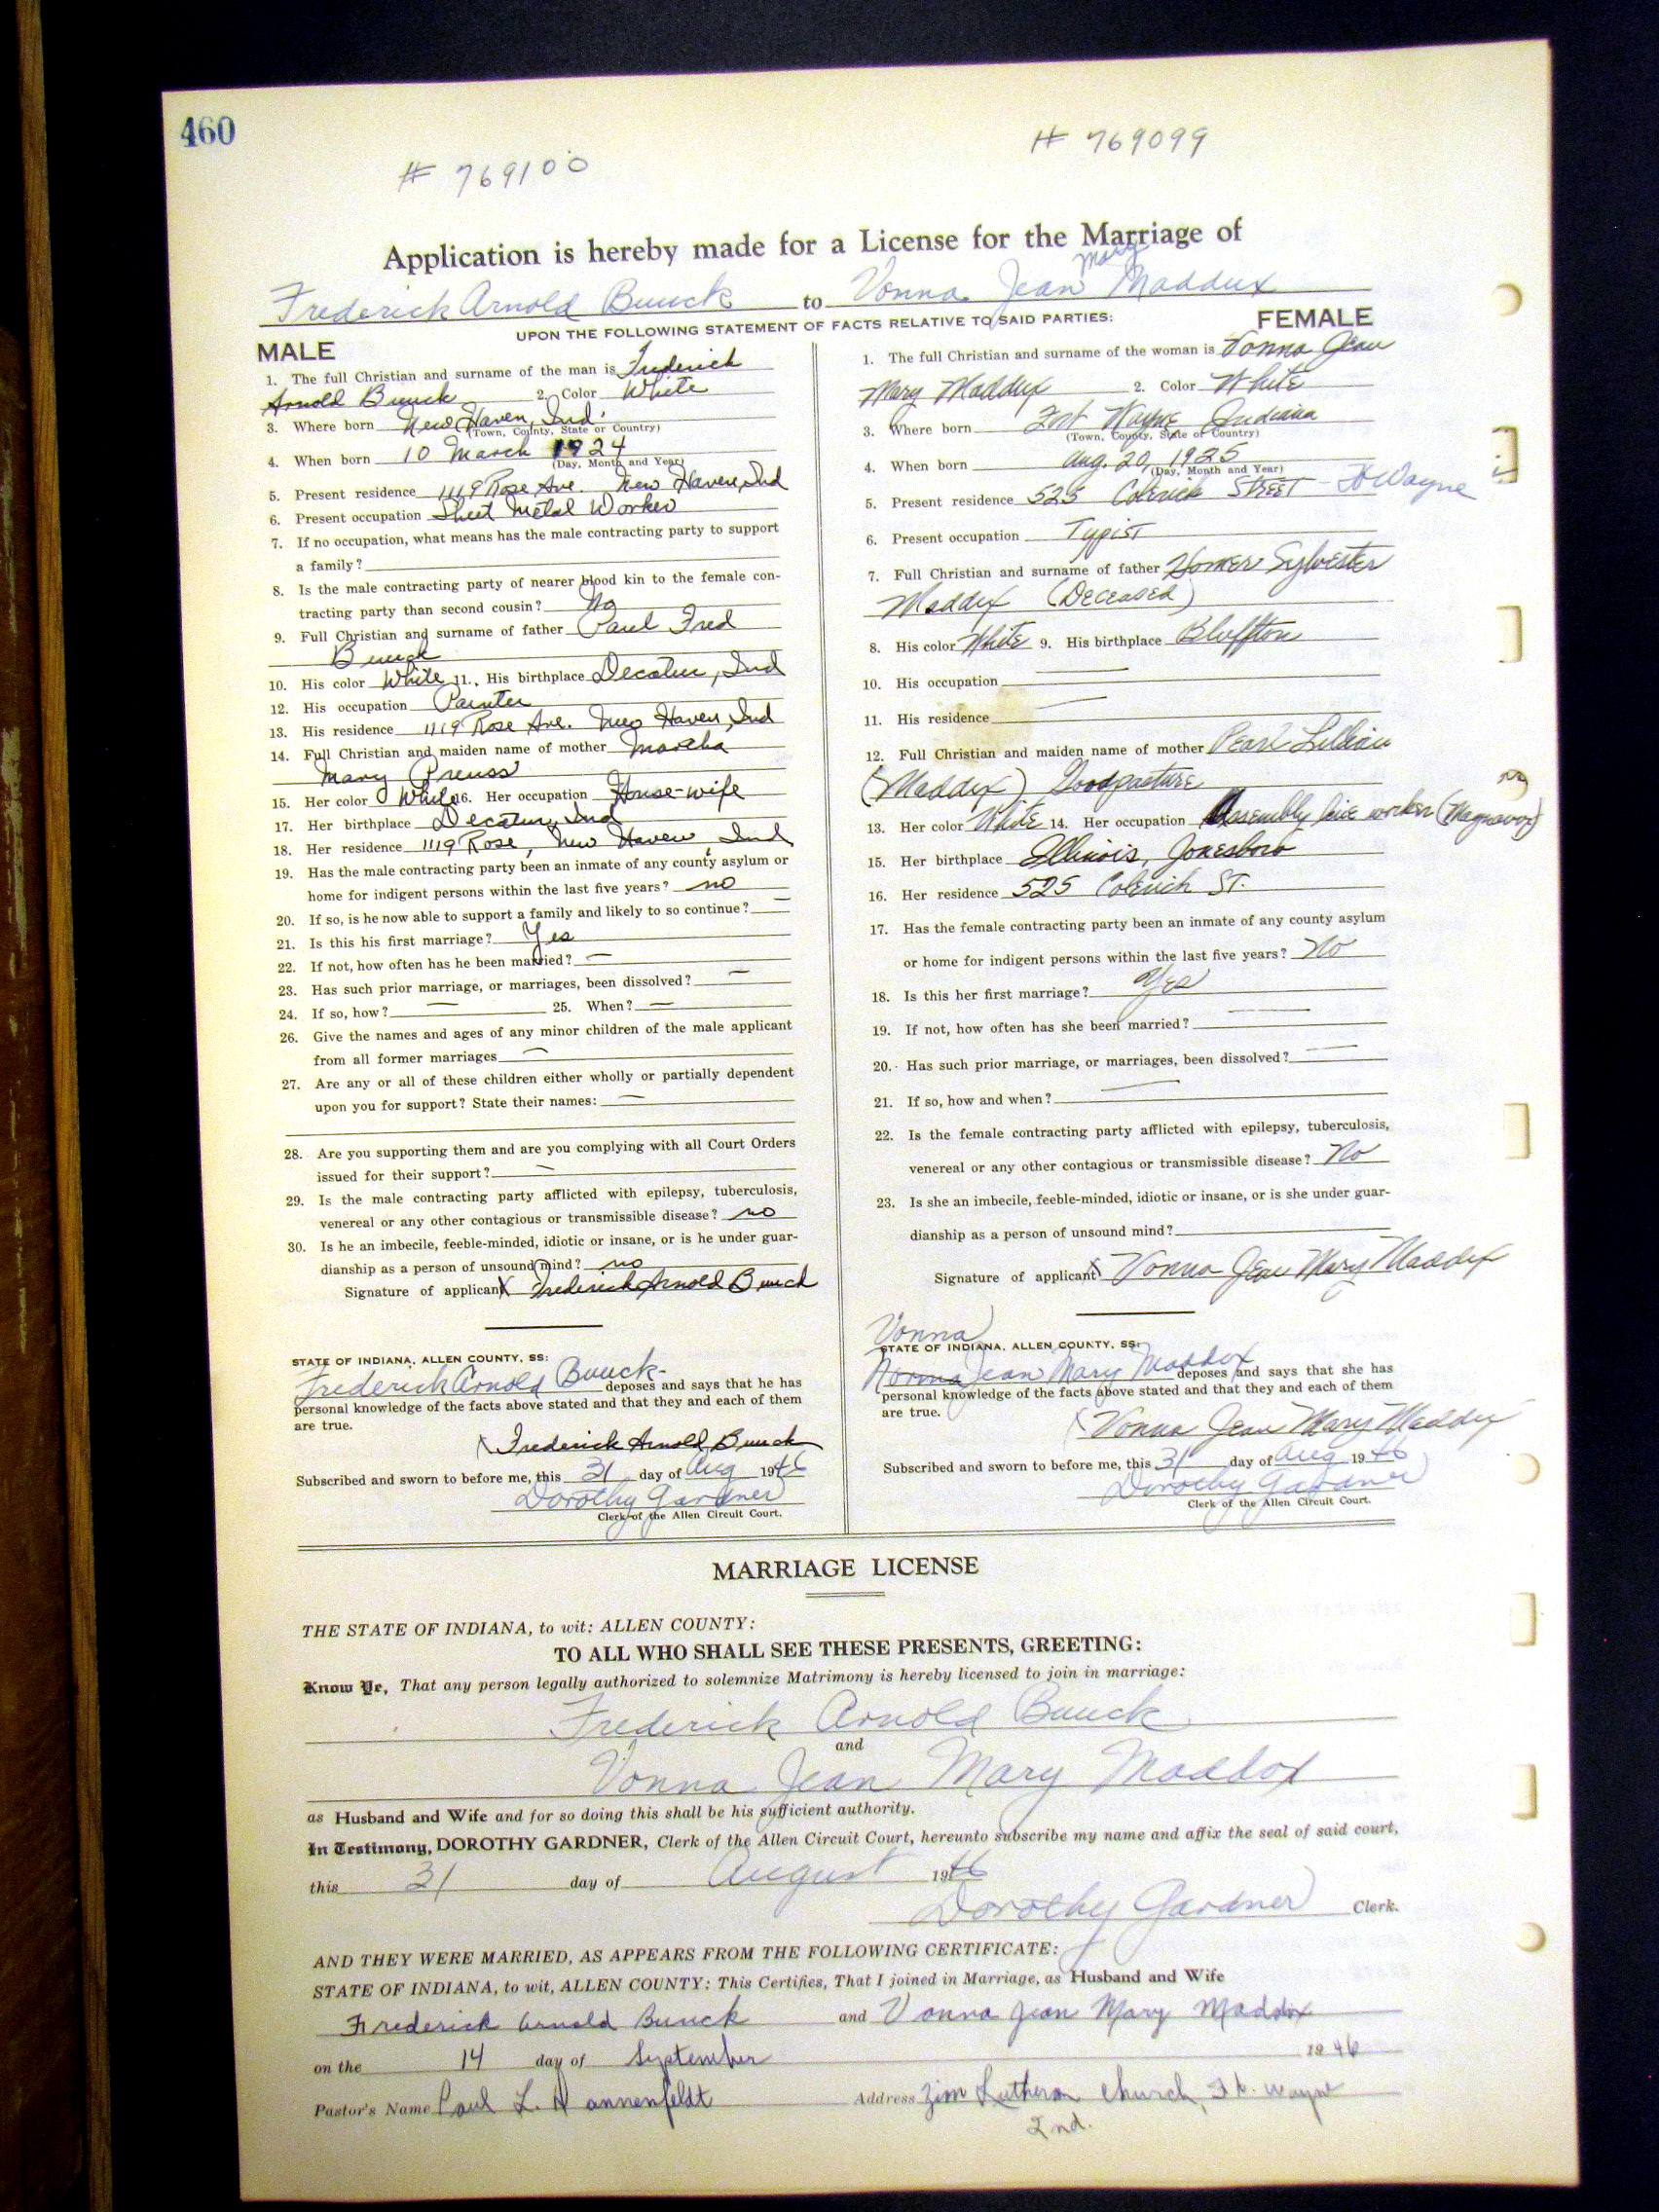 460
# 769100
# 769099
Application is hereby made for a License for the Marriage of
Mary
Frederick Arnold Buuck to Vonna Jean Maddux
UPON THE FOLLOWING STATEMENT OF FACTS RELATIVE TO SAID PARTIES:
MALE
1. The full Christian and surname of the man is Frederick
Arnold Buuck 2. Color White
3. Where born New Haven, Ind.
(Town, County, State or Country)
4. When born 10 March 1924
(Day, Month and Year)
5. Present residence 1119 Rose Ave. New Haven, Ind
6. Present occupation Sheet Metal Worker
7. If no occupation, what means has the male contracting party to support
a family?
8. Is the male contracting party of nearer blood kin to the female con-
tracting party than second cousin? No
9. Full Christian and surname of father Paul Fred
Buuck
10. His color White 11. His birthplace Decatur, Ind
12. His occupation Painter
13. His residence 1119 Rose Ave. New Haven, Ind
14. Full Christian and maiden name of mother Martha
Mary Preuss
15. Her color White 16. Her occupation House-wife
17. Her birthplace Decatur, Ind
18. Her residence 1119 Rose, New Haven, Ind
19. Has the male contracting party been an inmate of any county asylum or
home for indigent persons within the last five years? no
20. If so, is he now able to support a family and likely to so continue? —
21. Is this his first marriage? Yes
22. If not, how often has he been married? —
23. Has such prior marriage, or marriages, been dissolved? —
24. If so, how? — 25. When? —
26. Give the names and ages of any minor children of the male applicant
from all former marriages —
27. Are any or all of these children either wholly or partially dependent
upon you for support? State their names: —
28. Are you supporting them and are you complying with all Court Orders
issued for their support? —
29. Is the male contracting party afflicted with epilepsy, tuberculosis,
venereal or any other contagious or transmissible disease? no
30. Is he an imbecile, feeble-minded, idiotic or insane, or is he under guar-
dianship as a person of unsound mind? no
Signature of applicant X Frederick Arnold Buuck
STATE OF INDIANA, ALLEN COUNTY, SS:
Frederick Arnold Buuck deposes and says that he has
personal knowledge of the facts above stated and that they and each of them
are true.
X Frederick Arnold Buuck
Subscribed and sworn to before me, this 31 day of Aug 1946
Dorothy Gardner
Clerk of the Allen Circuit Court.
FEMALE
1. The full Christian and surname of the woman is Vonna Jean
Mary Maddux 2. Color White
3. Where born Fort Wayne, Indiana
(Town, County, State or Country)
4. When born Aug. 20, 1925
(Day, Month and Year)
5. Present residence 525 Colerick Street - Ft Wayne
6. Present occupation Typist
7. Full Christian and surname of father Homer Sylvester
Maddux (Deceased)
8. His color White 9. His birthplace Bluffton
10. His occupation —
11. His residence —
12. Full Christian and maiden name of mother Pearl Lillian
(Maddux) Goodpasture
13. Her color White 14. Her occupation Assembly line worker (Magnavox)
15. Her birthplace Illinois, Jonesboro
16. Her residence 525 Colerick St.
17. Has the female contracting party been an inmate of any county asylum
or home for indigent persons within the last five years? No
18. Is this her first marriage? Yes
19. If not, how often has she been married? —
20. Has such prior marriage, or marriages, been dissolved? —
21. If so, how and when? —
22. Is the female contracting party afflicted with epilepsy, tuberculosis,
venereal or any other contagious or transmissible disease? No
23. Is she an imbecile, feeble-minded, idiotic or insane, or is she under guar-
dianship as a person of unsound mind?
Signature of applicant X Vonna Jean Mary Maddux
Vonna
STATE OF INDIANA, ALLEN COUNTY, SS:
Norma Jean Mary Maddox deposes and says that she has
personal knowledge of the facts above stated and that they and each of them
are true.
X Vonna Jean Mary Maddux
Subscribed and sworn to before me, this 31 day of Aug 1946
Dorothy Gardner
Clerk of the Allen Circuit Court.
MARRIAGE LICENSE
THE STATE OF INDIANA, to wit: ALLEN COUNTY:
TO ALL WHO SHALL SEE THESE PRESENTS, GREETING:
Know Ye, That any person legally authorized to solemnize Matrimony is hereby licensed to join in marriage:
Frederick Arnold Buuck
and
Vonna Jean Mary Maddox
as Husband and Wife and for so doing this shall be his sufficient authority.
In Testimony, DOROTHY GARDNER, Clerk of the Allen Circuit Court, hereunto subscribe my name and affix the seal of said court,
this 31 day of August 1946
Dorothy Gardner Clerk.
AND THEY WERE MARRIED, AS APPEARS FROM THE FOLLOWING CERTIFICATE:
STATE OF INDIANA, to wit, ALLEN COUNTY: This Certifies, That I joined in Marriage, as Husband and Wife
Frederick Arnold Buuck and Vonna Jean Mary Maddox
on the 14 day of September 1946
Pastor's Name Paul L. Dannenfeldt Address Zion Lutheran Church, Ft. Wayne
Ind.